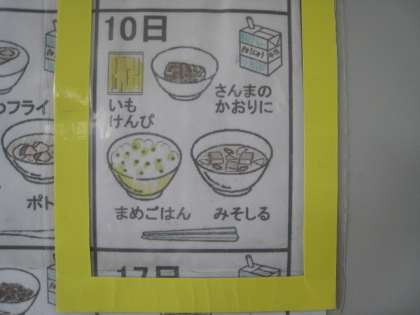 10日
ぎゅうにゅう
いも
けんぴ
さんまの
かおりに
フライ
ポト
まめごはん
みそしる
17日